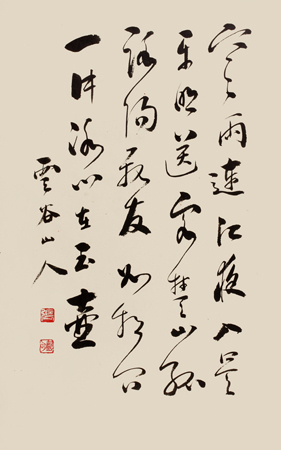 寒雨連江夜入吳
平明送客楚山孤
洛陽親友如相問
一片冰心在玉壺
雲谷山人